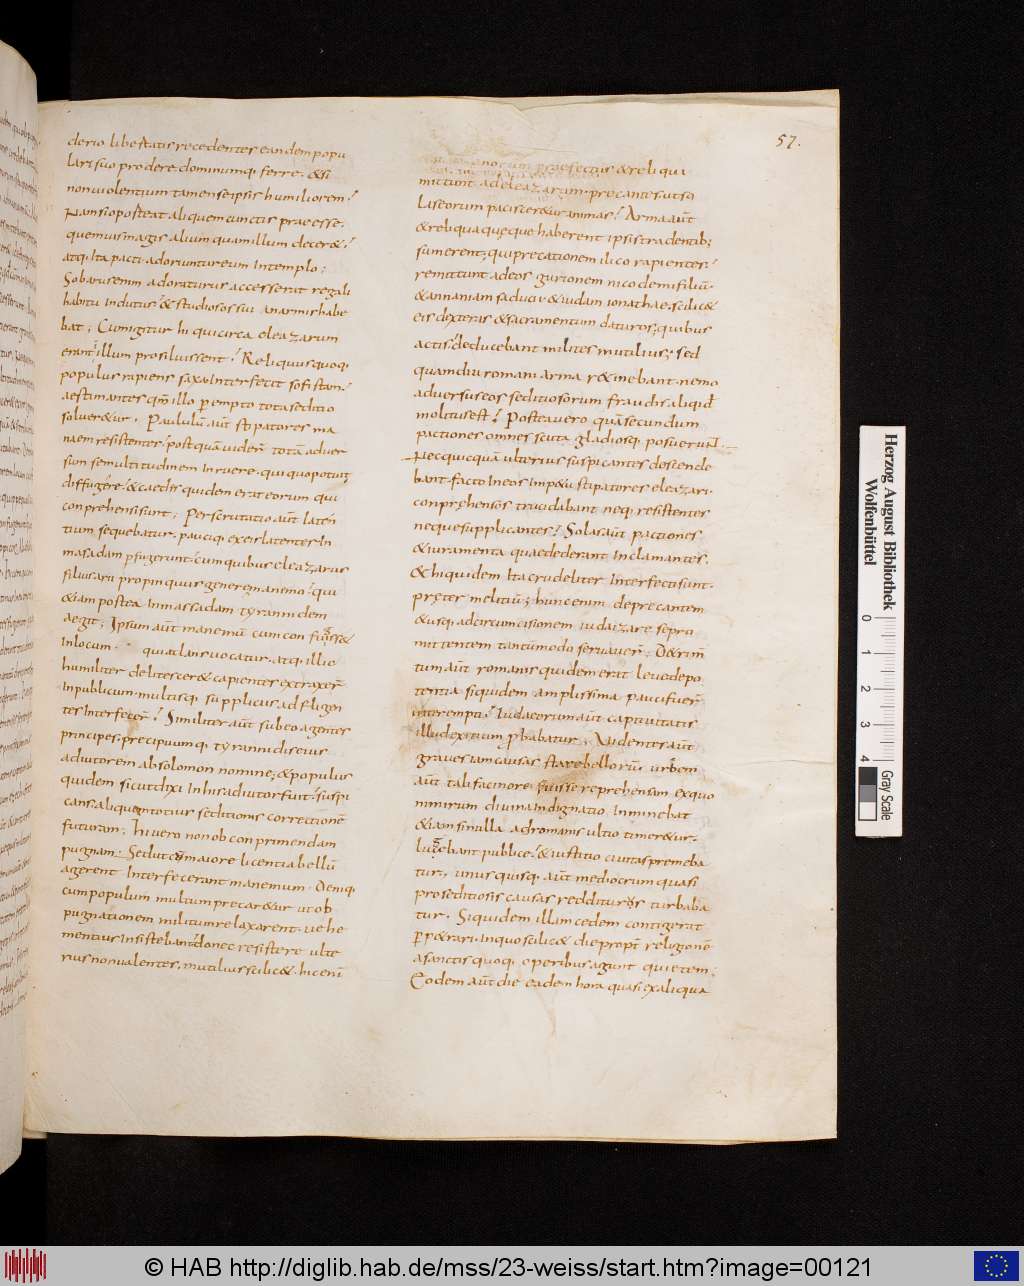 57.
derio libertatis recedentes eandem popu
lari suo prodere dominumq; ferre. &si
non violentium tamense ipsis humiliorem!
Nam si oporteat aliquem cunctis praeesse.
quemuis magis alium quam illum decer&!
atq; ita pacti. adoriuntur eum Intemplo;
Sobarus enim adoraturus accesserat regali
habitu Indutus! & studiosos sui anarmis habe
bat; Cumigitur hi qui circa eleazarum
erant illum prosiluissent! Reliquusquoq;
populus rapiens saxa Interfecit sofistam!
aestimantes qm̄ illo perempto tota seditio
soluer&ur. Paululū aūt stipatores ma
naem resistentes! postquā uidert̄ totā aduer
sum se multitudinem Inruere. qui quo potuit
diffugere! &caedis quidem erat eorum qui
conprehensi sunt; Perscrutatio aūt laten
tium sequebatur. pauciq; exeis latenter In
masadam pfugerunt! cum quibus eleazarus
filius ari propinquus generemanemo! qui
&iam postea In massadam tyrannidem
aegit; Ipsum aūt manemū cum confugiss&
In locum quiaclais uocatur. atq; illic
humiliter delitescer& capientes extraxer̄
In publicum. multisq; suppliciis adfligen
tes Interfecer̄! Similiter aūt subeo agentes
principes. precipuumq; tyrannidis eius
adiutorem absolomon nomine; &populus
quidem sicut dixi In his adiutor fuit! suspi
cans. aliquem totius seditionis correctionē
futuram; hi uero non ob conprimendam
pugnam. Sed ut cū maiore licentia bellū
agerent Interfecerant manemum. Deniq;
cum populum multum precar&ur ut ob
pugnationem militum relaxarent. uehe
mentius Insistebant! donec resistere ulte
rius non ualentes. mutilius scilic&. hic enī
romanorum praefectus &reliqui
mittunt adeleazarum. precantes. ut so
las eorum paciscer&ur animas! Arma aūt
&reliqua quęque haberent ipsis tradentib;
sumerent; qui precationem ilico rapientes!
remittunt adeos gurionem nicodemi filiū.
&annaniam saduci. &iudam ionathae. scilic&
eis dextras &sacramentum daturos; quibus
actis! deducebant milites mutilius; sed
quamdiu romani arma r&inebant. nemo
aduersus eos seditiosorum fraudis. aliqid
molitus est! Postea uero quā secundum
pactiones omnes scuta gladiosq; posuerunt
Nec quicquā ulterius suspicantes doscende
bant. facto In eos Imp&u stipatores eleazari.
conprehensos trucidabant neq; resistentes
neque supplicantes! Solas aūt pactiones
&iuramenta quae dederant Inclamantes.
&hi quidem Ita crudeliter Interfecti sunt.
pręter melitiū; hunc enim deprecantem
&usq; ad circumcisionem iudaizare se pro
mittentem tantūmodo seruauer̄; D&rim̄
tum aūt romanis quidem erat leue depo
tentia siquidem amplissima pauci fuer̄
interempti! Iudaeorum aūt captiuitatis
illud exitium probabatur; Uidentes aūt
graues iam causas stare bellorū. urbem
aūt tali facinore fuisse reprehensam exquo
nimirum diuina Indignatio Inminebat
&iam si nulla adromanis ultio timer&ur.
lugebant publice! &iustitio ciuitas premeba
tur; unusquisq; aūt mediocrum quasi
pro seditiosis causas redditurus turbaba
tur. Siquidem illam cedem contigerat
perp&rari. Inquo scilic& die propt religionē
a sanctis quoq; operibus agunt quietem;
Eodem aūt die eadem hora quasi exaliqua
Herzog August Bibliothek
Wolfenbüttel
0 1 2 3 4
Gray Scale
© HAB http://diglib.hab.de/mss/23-weiss/start.htm?image=00121